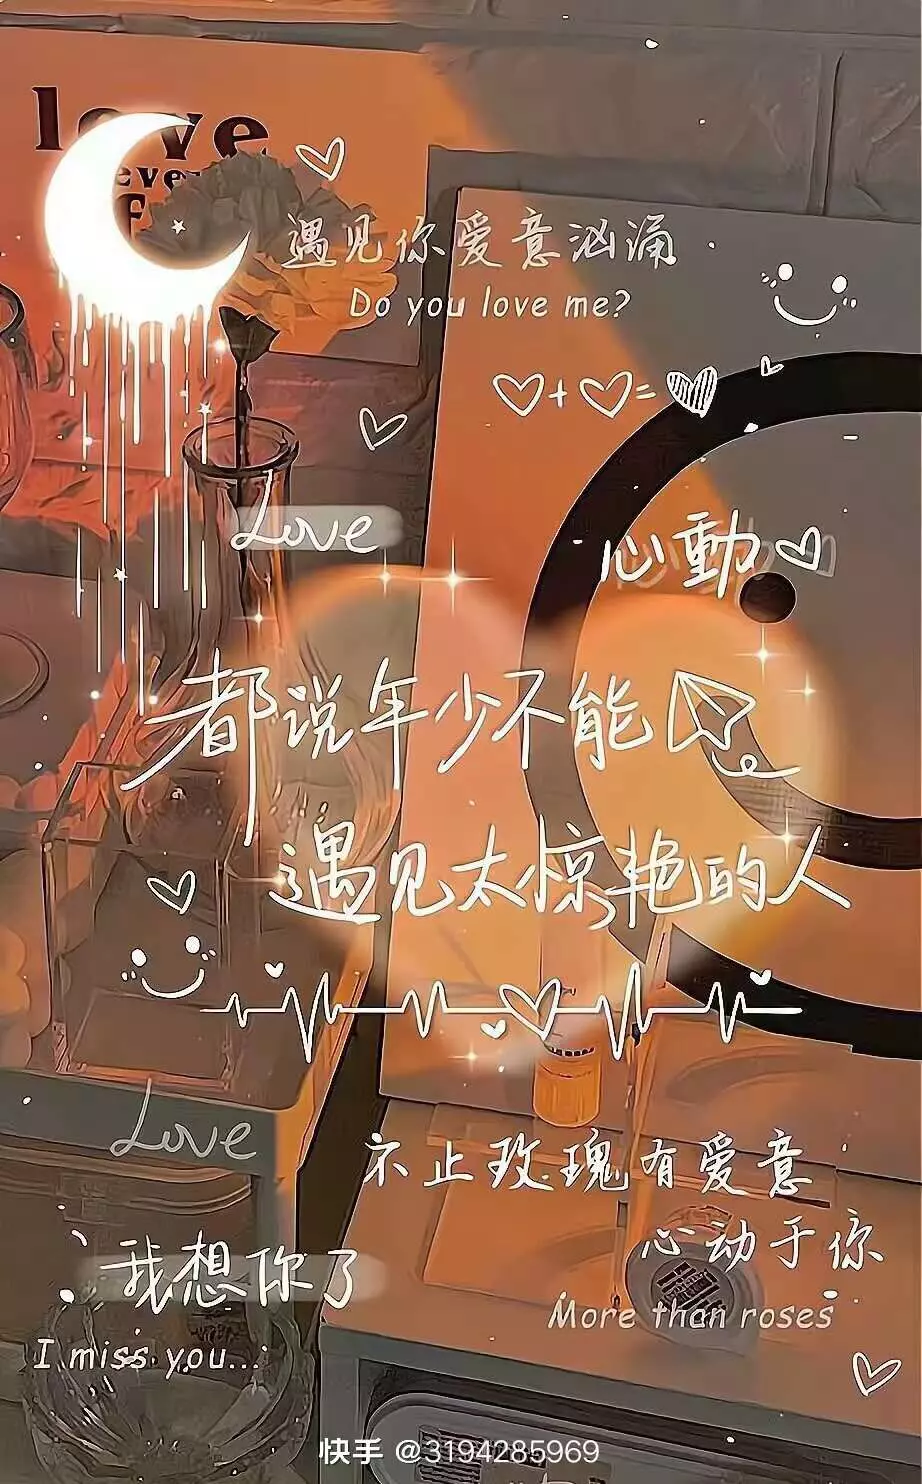 love
遇见你爱意汹涌
Do you love me?
♡+♡=
Love
心動
都说年少不能
遇见太惊艳的人
Love
不止玫瑰有爱意
心动于你
More than roses
我想你了
I miss you...
快手 @3194285969